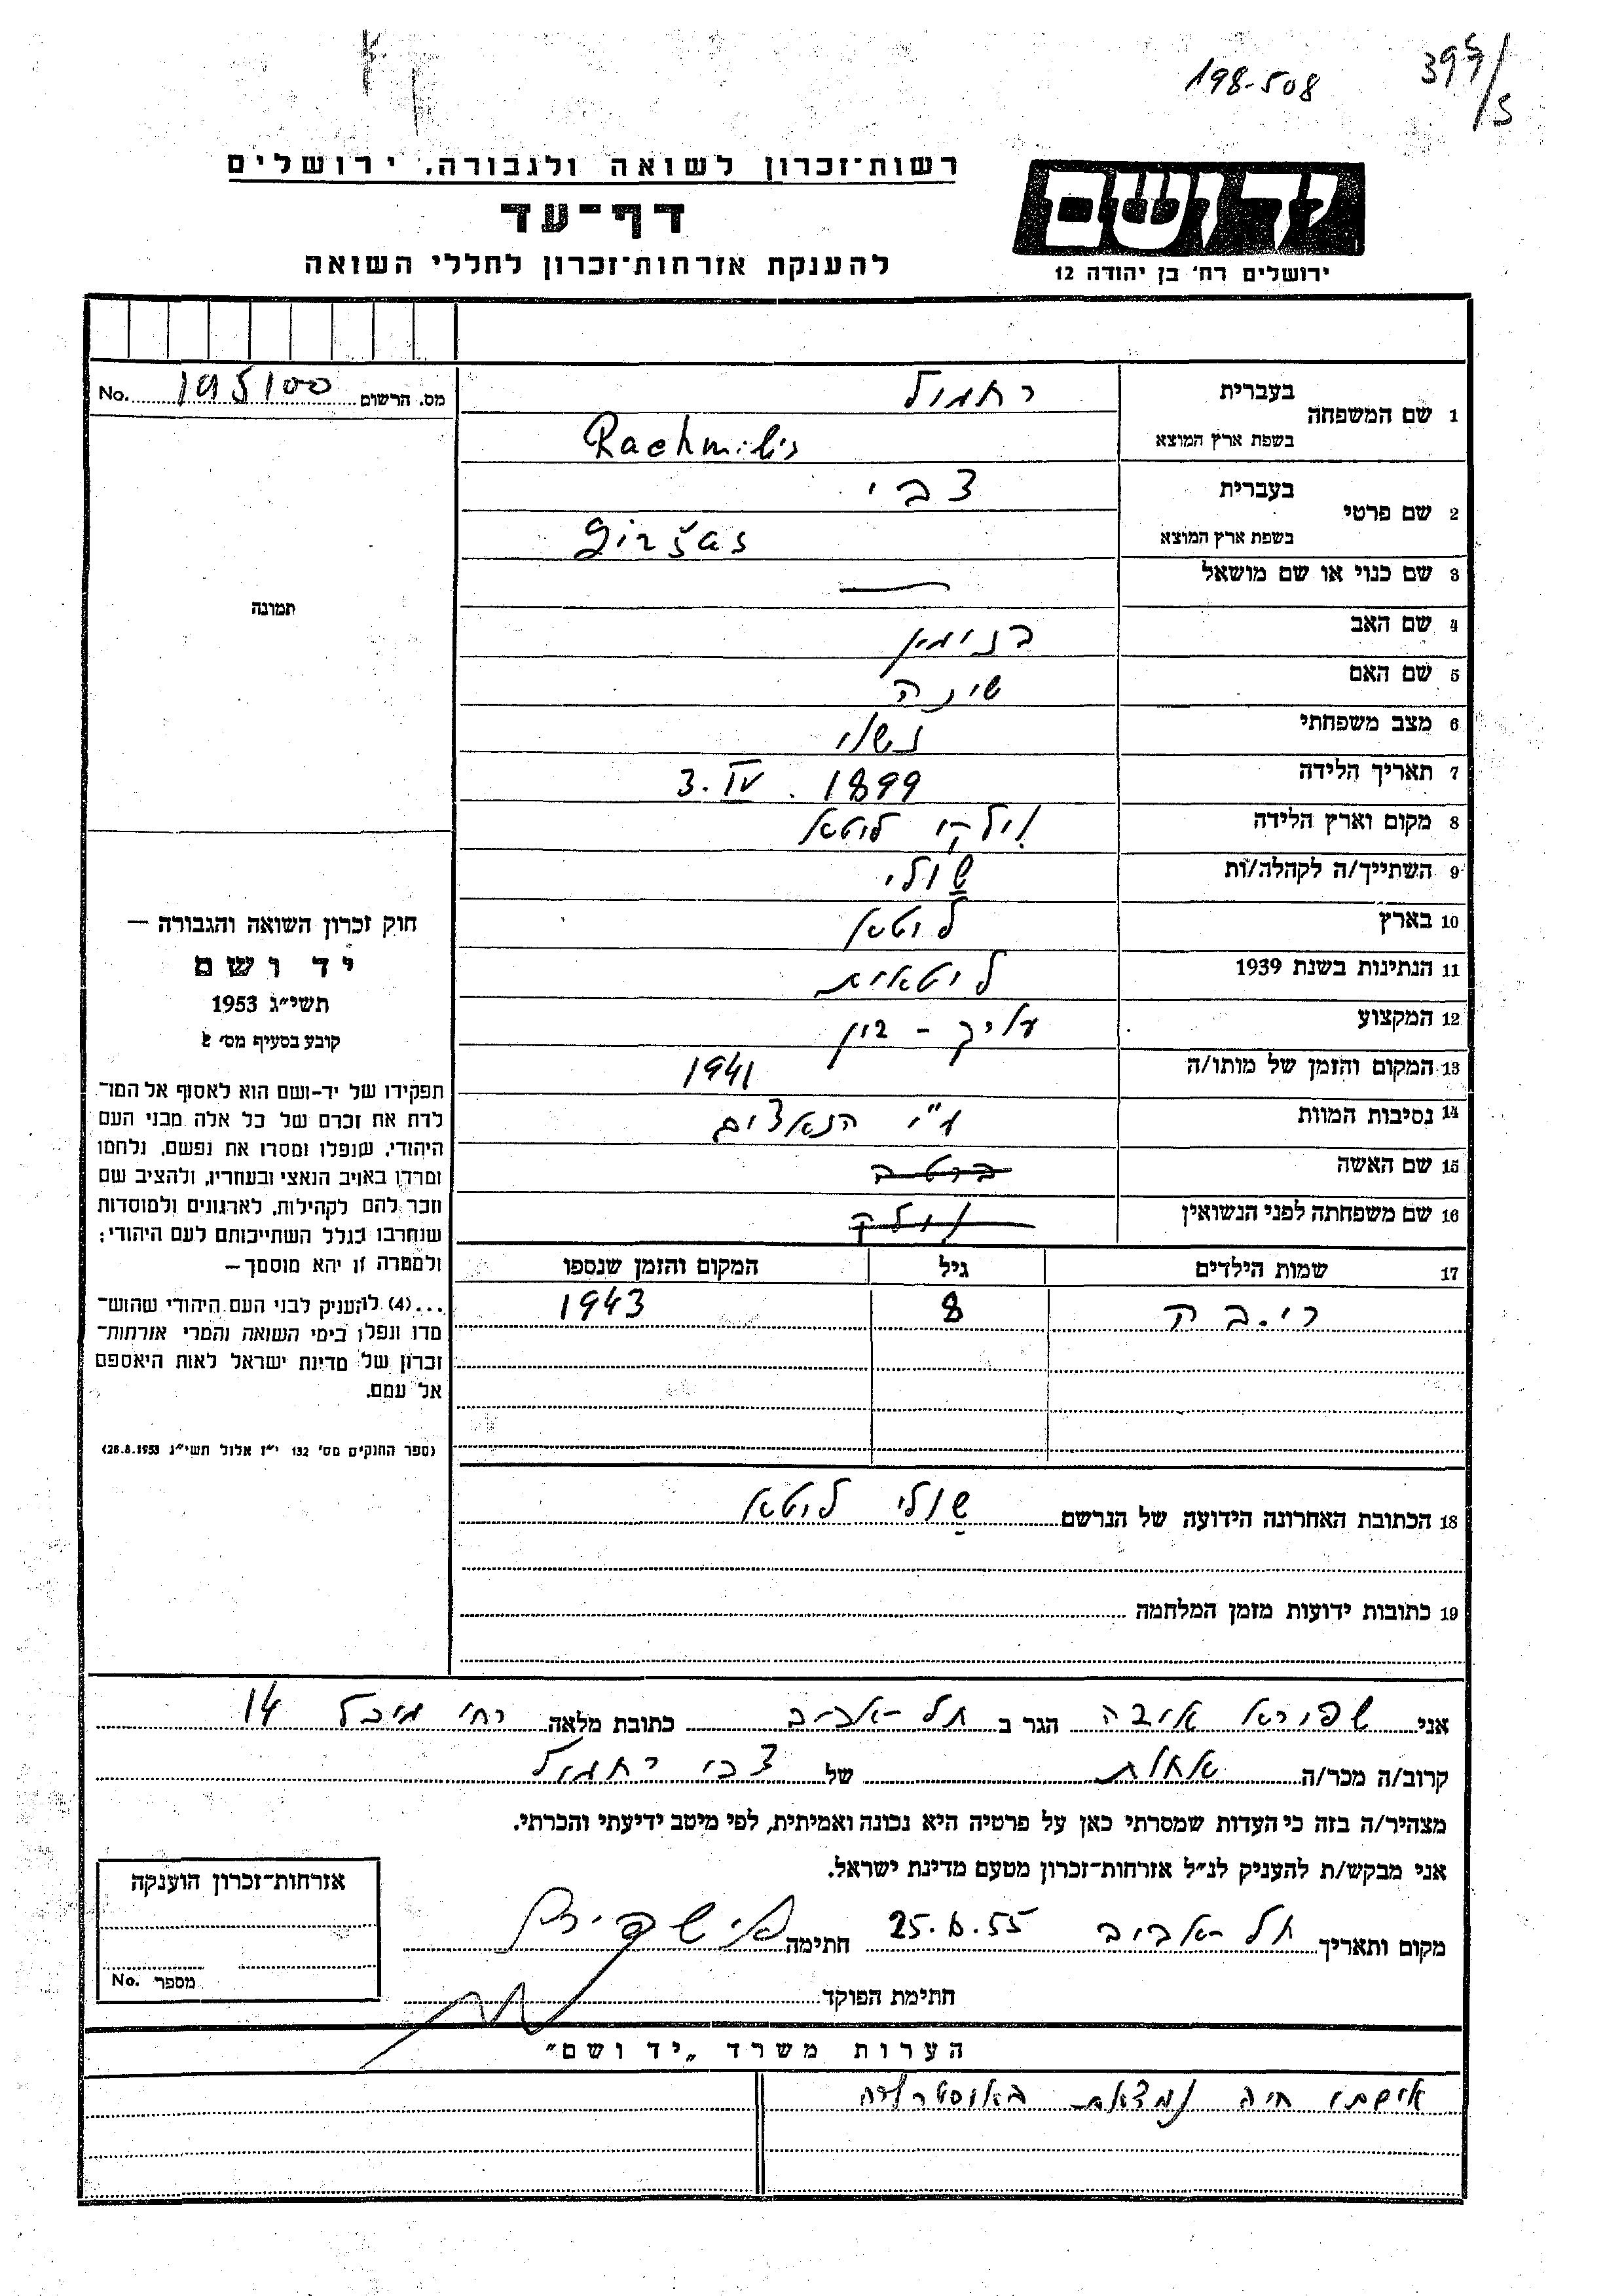 198-508
רשות־זכרון לשואה ולגבורה, ירושלים
דף־עד
להענקת אזרחות־זכרון לחללי השואה
יד ושם
ירושלים רח' בן יהודה 12
מס. הרשום 195100 No.
1 שם המשפחה
בעברית רחמיל
בשפת ארץ המוצא Rachmilis
2 שם פרטי
בעברית צבי
בשפת ארץ המוצא Giršas
3 שם כנוי או שם מושאל —
4 שם האב בנימין
5 שם האם שינה
6 מצב משפחתי נשוי
7 תאריך הלידה 3. IV. 1899
8 מקום וארץ הלידה וילקי ליטא
9 השתייך/ה לקהלה/ות שולי
10 בארץ ליטא
11 הנתינות בשנת 1939 ליטאית
12 המקצוע
13 המקום והזמן של מותו/ה 1941
14 נסיבות המוות ע"י הנאצים
15 שם האשה ברטה
16 שם משפחתה לפני הנשואין
17 שמות הילדים גיל המקום והזמן שנספו
8 1943
תמונה
חוק זכרון השואה והגבורה —
יד ושם
תשי״ג 1953
קובע בסעיף מס׳ 2
תפקידו של יד-ושם הוא לאסוף אל המו־
לדת את זכרם של כל אלה מבני העם
היהודי, שנפלו ומסרו את נפשם, נלחמו
ומרדו באויב הנאצי ובעחריו, ולהציב שם
וזכר להם לקהילות, לארגונים ולמוסדות
שנחרבו בגלל השתייכותם לעם היהודי;
ולמטרה זו יהא מוסמך—
...(4) להעניק לבני העם היהודי שהוש־
מדו ונפלו בימי השואה והמרי אזרחות־
זכרון של מדינת ישראל לאות היאספם
אל עמם.
(ספר החוקים מס׳ 132 י״ז אלול תשי״ג 28.8.1953)
18 הכתובת האחרונה הידועה של הנרשם שולי ליטא
19 כתובות ידועות מזמן המלחמה
אני שפירא איבה הגר ב תל-אביב כתובת מלאה רח' מיכל 14
קרוב/ה מכר/ה אחות של צבי רחמיל
מצהיר/ה בזה כי העדות שמסרתי כאן על פרטיה היא נכונה ואמיתית, לפי מיטב ידיעתי והכרתי.
אני מבקש/ת להעניק לנ״ל אזרחות־זכרון מטעם מדינת ישראל.
מקום ותאריך תל-אביב 25.6.55 חתימה
חתימת הפוקד
אזרחות־זכרון הוענקה
מספר No.
הערות משרד „יד ושם"
אישתו חיה נמצאת באוסטרליה